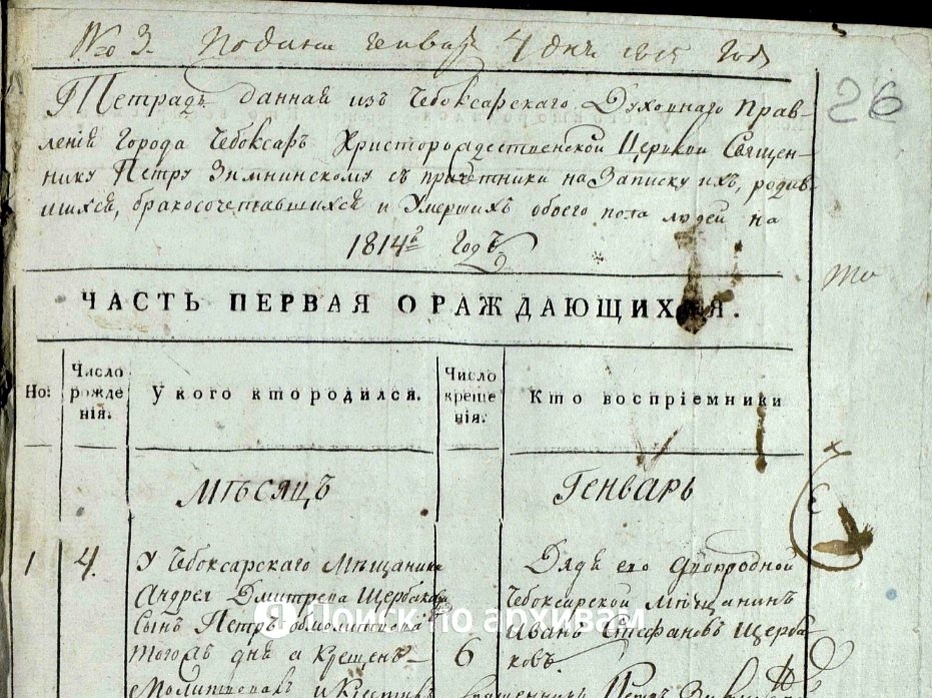 № 3. Подана генваря 4 дня 1815 года
26
Тетрадь данная изъ Чебоксарскаго Духовнаго Прав-
ленія Города Чебоксаръ Христорождественской Церкви Священ-
нику Петру Зимнинскому съ причетники на Записку ихъ, родив-
шихся, бракосочетавшихся и Умершихъ обоего пола людей на
1814й Годъ
то
ЧАСТЬ ПЕРВАЯ О РАЖДАЮЩИХСЯ.
Но:
Число
рожде
нія.
У кого кто родился.
Число
креще
нія.
Кто воспріемники
МѢСЯЦЪ
Генварь
1
4.
У Чебоксарскаго Мѣщанина
Андрея Дмитрева Щербакова
Сынъ Петръ
тогожъ дня а Крещенъ-
6
Дядя его двоюродной
Чебоксарской мѣщанинъ
Иванъ Стефановъ Щерба-
ковъ.
Поиск по архивам
Петръ